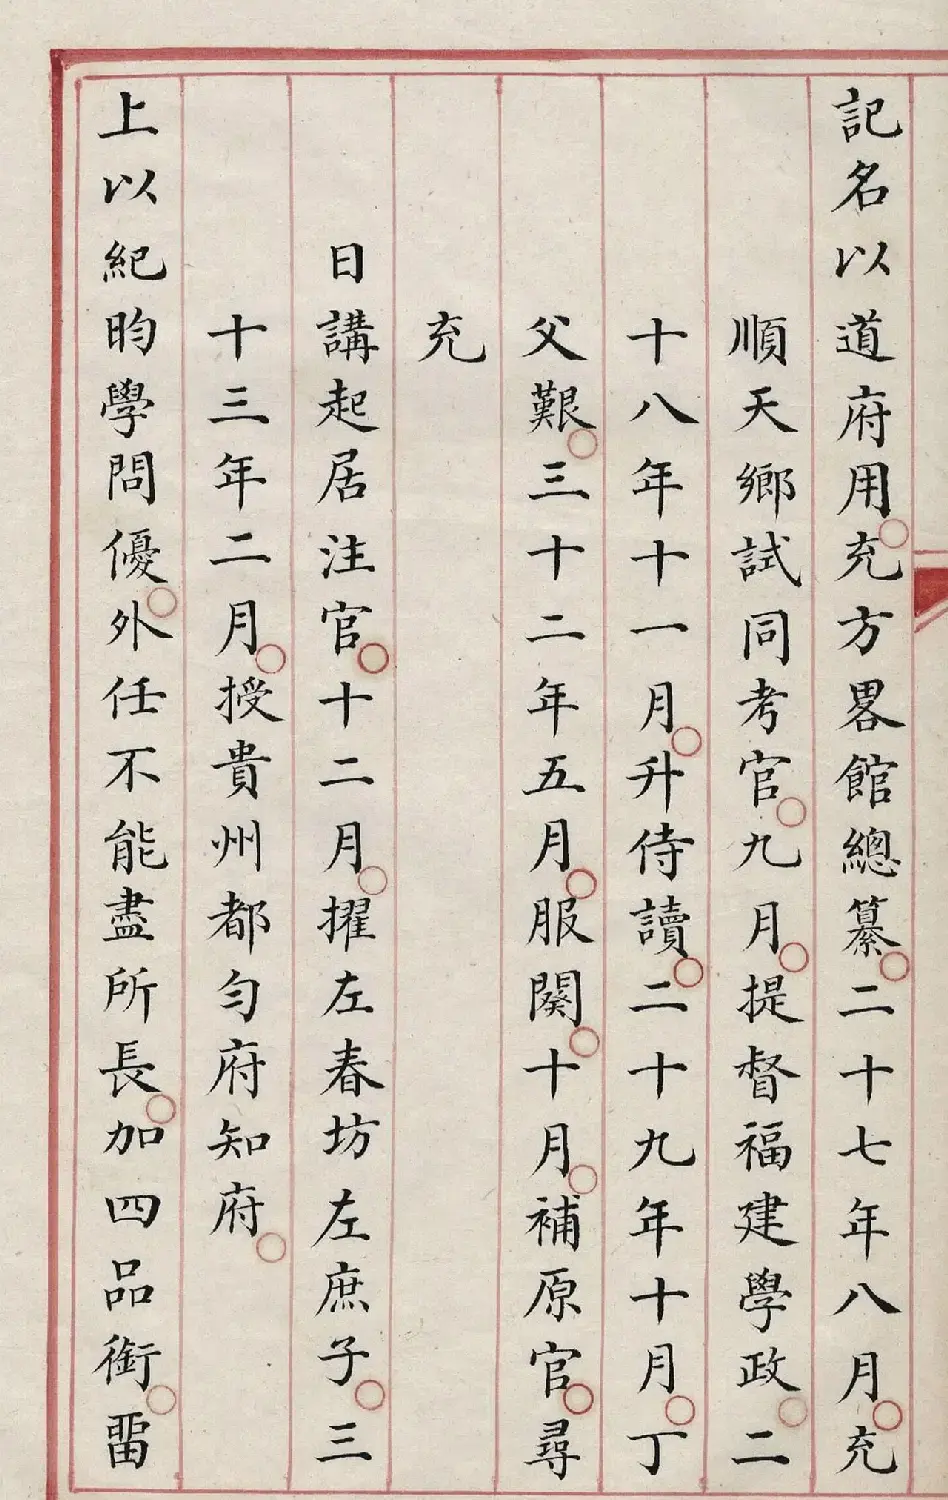 記名以道府用○充方畧館總纂○二十七年八月○充
順天鄉試同考官○九月○提督福建學政○二
十八年十一月○升侍讀○二十九年十月○丁
父艱○三十二年五月○服闋○十月○補原官○尋
充
日講起居注官○十二月○擢左春坊左庶子○三
十三年二月○授貴州都勻府知府○
上以紀昀學問優○外任不能盡所長○加四品銜○畱